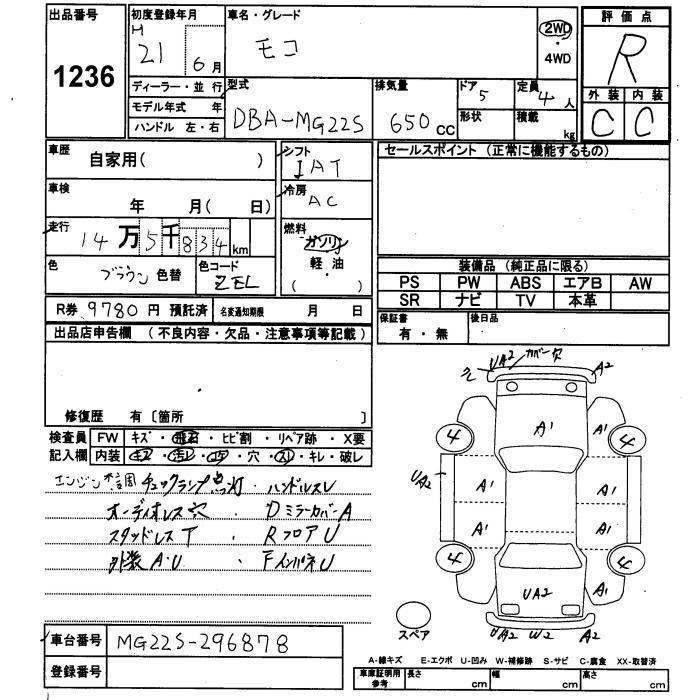 出品番号 1236
初度登録年月 H 21 6 月
車名・グレード モコ
2WD ・ 4WD
評価点 R
外装 内装
C C
ディーラー・並 行
モデル年式 年
ハンドル 左・右
型式 DBA-MG22S
排気量 650 CC
ドア 5
形状
定員 4 人
積載 kg
車歴 自家用( )
車検 年 月( 日)
走行 14万5千834 km
色 ブラウン 色替
色コード ZEL
シフト IAT
冷房 AC
燃料 ガソリン
軽・油
( )
セールスポイント (正常に機能するもの)
装備品 (純正品に限る)
PS PW ABS エアB AW
SR ナビ TV 本革
保証書 有・無
後日品
R券 9780 円 預託済 名変通知期限 月 日
出品店申告欄 (不良内容・欠品・注意事項等記載)
修復歴 有〔箇所 〕
検査員 FW キズ・飛石・ヒビ割・リペア跡・X要
記入欄 内装 キズ・汚レ・コゲ・穴・スレ・キレ・破レ
エンジン チェックランプ点灯・ハンドルスレ
オーディオレス穴 ・ DミラーカバーA
スタッドレスT ・ RフロアU
外装A・U ・ FインパネU
UA2 カバー穴 A2
A1 A1
4 4
UA2 A1 A1
A1 A1
4 4
UA2 A1
UA2 W2 A2
スペア
車台番号 MG22S-296878
登録番号
A-線キズ E-エクボ U-凹み W-補修跡 S-サビ C-腐食 XX-取替済
車庫証明用参考 長さ cm 幅 cm 高さ cm